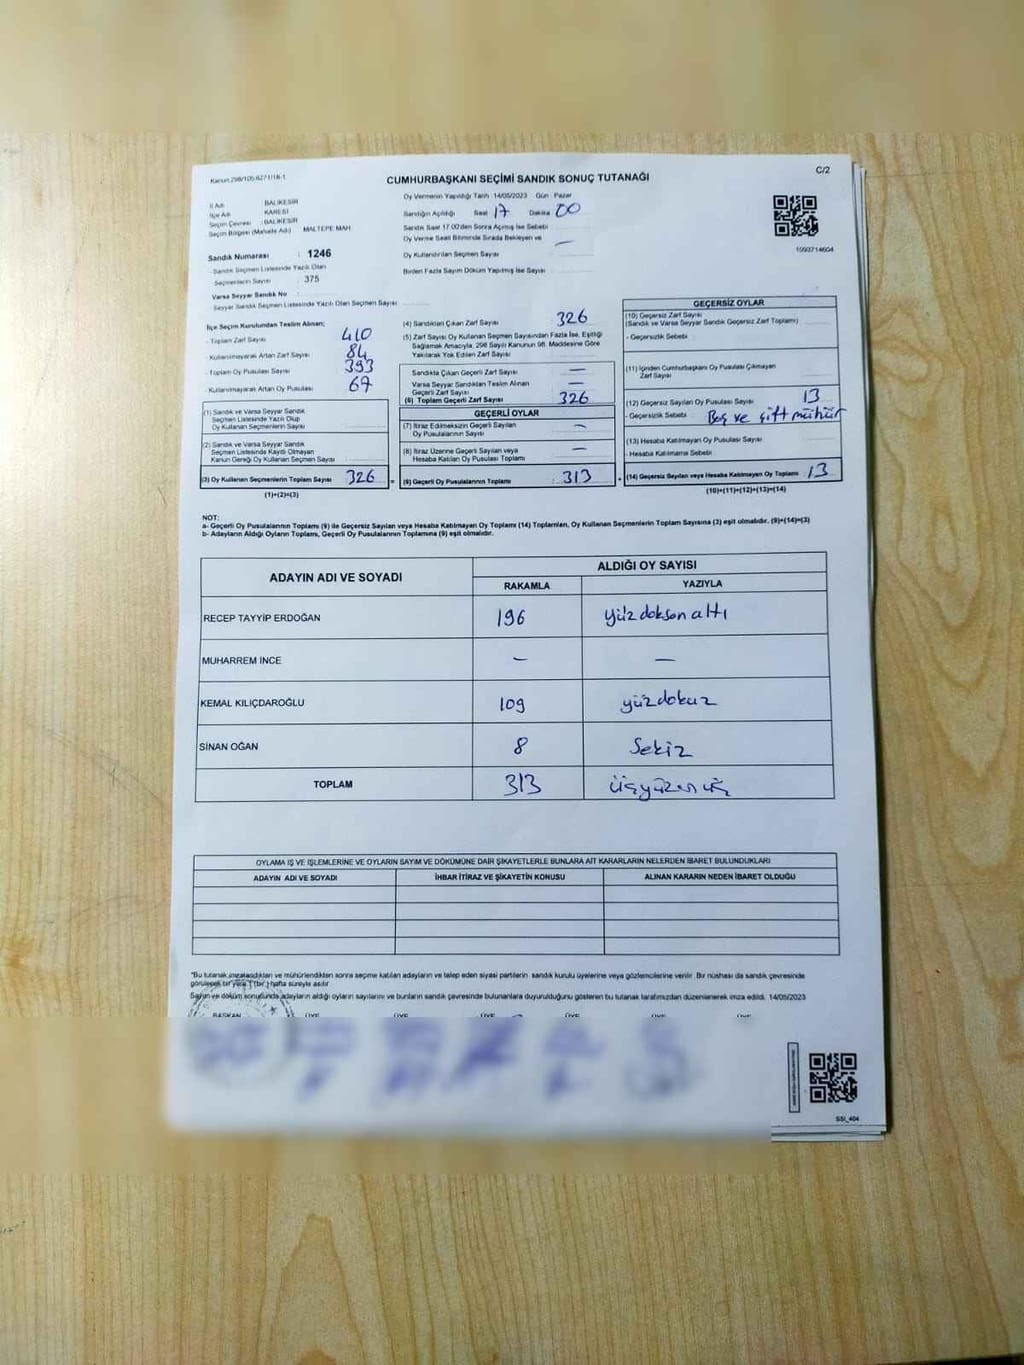 Kanun:298/105;6271/16-1
C/2
CUMHURBAŞKANI SEÇİMİ SANDIK SONUÇ TUTANAĞI
İl Adı : BALIKESİR
İlçe Adı : KARESİ
Seçim Çevresi : BALIKESİR
Seçim Bölgesi (Mahalle Adı) MALTEPE MAH.
Sandık Numarası : 1246
- Sandık Seçmen Listesinde Yazılı Olan
Seçmenlerin Sayısı : 375
Varsa Seyyar Sandık No :
Seyyar Sandık Seçmen Listesinde Yazılı Olan Seçmen Sayısı
Oy Vermenin Yapıldığı Tarih 14/05/2023 Gün Pazar
Sandığın Açıldığı Saat 17 Dakika 00
Sandık Saat 17.00'den Sonra Açılmış İse Sebebi
Oy Verme Saati Bitiminde Sırada Bekleyen ve
Oy Kullandırılan Seçmen Sayısı —
Birden Fazla Sayım Döküm Yapılmış İse Sayısı
1093714604
İlçe Seçim Kurulundan Teslim Alınan;
- Toplam Zarf Sayısı 410
- Kullanılmayarak Artan Zarf Sayısı 84
- Toplam Oy Pusulası Sayısı 393
- Kullanılmayarak Artan Oy Pusulası 67
(1) Sandık ve Varsa Seyyar Sandık
Seçmen Listesinde Yazılı Olup
Oy Kullanan Seçmenlerin Sayısı
(2) Sandık ve Varsa Seyyar Sandık
Seçmen Listesinde Kaydı Olmayan
Kanun Gereği Oy Kullanan Seçmen Sayısı
(3) Oy Kullanan Seçmenlerin Toplam Sayısı 326 =
(1)+(2)=(3)
(4) Sandıktan Çıkan Zarf Sayısı 326
(5) Zarf Sayısı Oy Kullanan Seçmen Sayısından Fazla İse, Eşitliği
Sağlamak Amacıyla, 298 Sayılı Kanunun 98. Maddesine Göre
Yakılarak Yok Edilen Zarf Sayısı
Sandıkta Çıkan Geçerli Zarf Sayısı —
Varsa Seyyar Sandıktan Teslim Alınan
Geçerli Zarf Sayısı —
(6) Toplam Geçerli Zarf Sayısı 326
GEÇERLİ OYLAR
(7) İtiraz Edilmeksizin Geçerli Sayılan
Oy Pusulalarının Sayısı —
(8) İtiraz Üzerine Geçerli Sayılan veya
Hesaba Katılan Oy Pusulası Toplamı —
(9) Geçerli Oy Pusulalarının Toplamı 313 +
GEÇERSİZ OYLAR
(10) Geçersiz Zarf Sayısı
(Sandık ve Varsa Seyyar Sandık Geçersiz Zarf Toplamı)
- Geçersizlik Sebebi
(11) İçinden Cumhurbaşkanı Oy Pusulası Çıkmayan
Zarf Sayısı
(12) Geçersiz Sayılan Oy Pusulası Sayısı 13
- Geçersizlik Sebebi Boş ve çift mühür
(13) Hesaba Katılmayan Oy Pusulası Sayısı
- Hesaba Katılmama Sebebi
(14) Geçersiz Sayılan veya Hesaba Katılmayan Oy Toplamı 13
(10)+(11)+(12)+(13)=(14)
NOT:
a- Geçerli Oy Pusulalarının Toplamı (9) ile Geçersiz Sayılan veya Hesaba Katılmayan Oy Toplamı (14) Toplamları, Oy Kullanan Seçmenlerin Toplam Sayısına (3) eşit olmalıdır. (9)+(14)=(3)
b- Adayların Aldığı Oyların Toplamı, Geçerli Oy Pusulalarının Toplamına (9) eşit olmalıdır.
ADAYIN ADI VE SOYADI
ALDIĞI OY SAYISI
RAKAMLA YAZIYLA
RECEP TAYYİP ERDOĞAN 196 yüzdoksanaltı
MUHARREM İNCE — —
KEMAL KILIÇDAROĞLU 109 yüzdokuz
SİNAN OĞAN 8 Sekiz
TOPLAM 313 üçyüzonüç
OYLAMA İŞ VE İŞLEMLERİNE VE OYLARIN SAYIM VE DÖKÜMÜNE DAİR ŞİKAYETLERLE BUNLARA AİT KARARLARIN NELERDEN İBARET BULUNDUKLARI
ADAYIN ADI VE SOYADI İHBAR İTİRAZ VE ŞİKAYETİN KONUSU ALINAN KARARIN NEDEN İBARET OLDUĞU
*Bu tutanak imzalandıktan ve mühürlendikten sonra seçime katılan adayların ve talep eden siyasi partilerin sandık kurulu üyelerine veya gözlemcilerine verilir. Bir nüshası da sandık çevresinde
görülecek bir yere 1 (bir) hafta süreyle asılır.
Sayım ve döküm sonucunda adayların aldığı oyların sayılarını ve bunların sandık çevresinde bulunanlara duyurulduğunu gösteren bu tutanak tarafımızdan düzenlenerek imza edildi. 14/05/2023
BAŞKAN ÜYE ÜYE ÜYE ÜYE ÜYE ÜYE
SSI_404